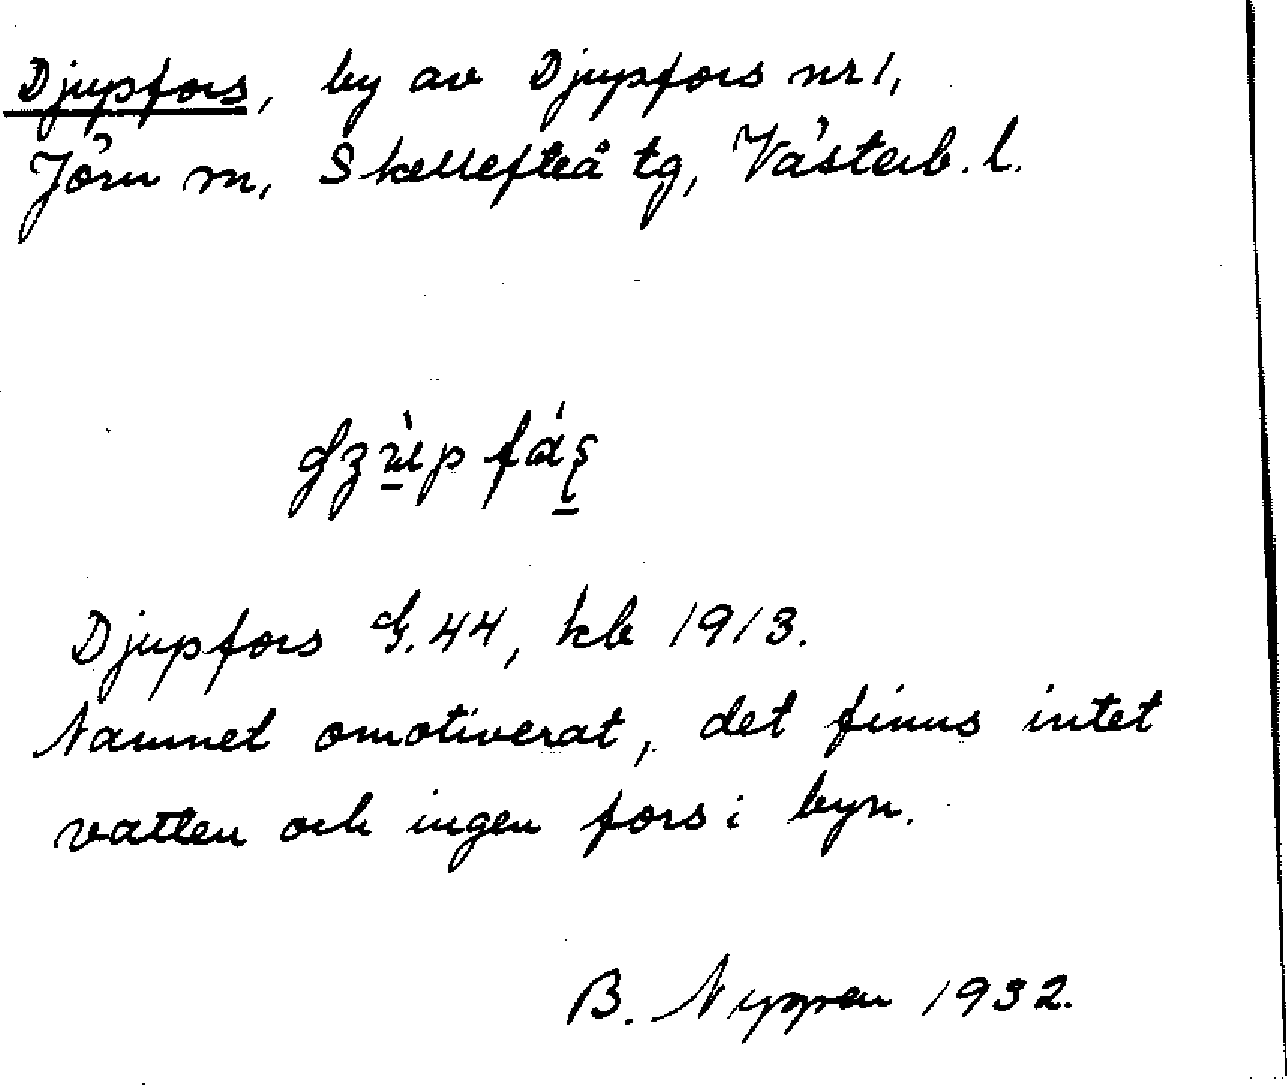 Djupfors, by av Djupfors nr 1,
Jörn sn, Skellefteå tg, Västerb. l.
Djupfors G. 44, kb 1913.
Namnet omotiverat, det finns intet
vatten och ingen fors i byn.
B. 1932.